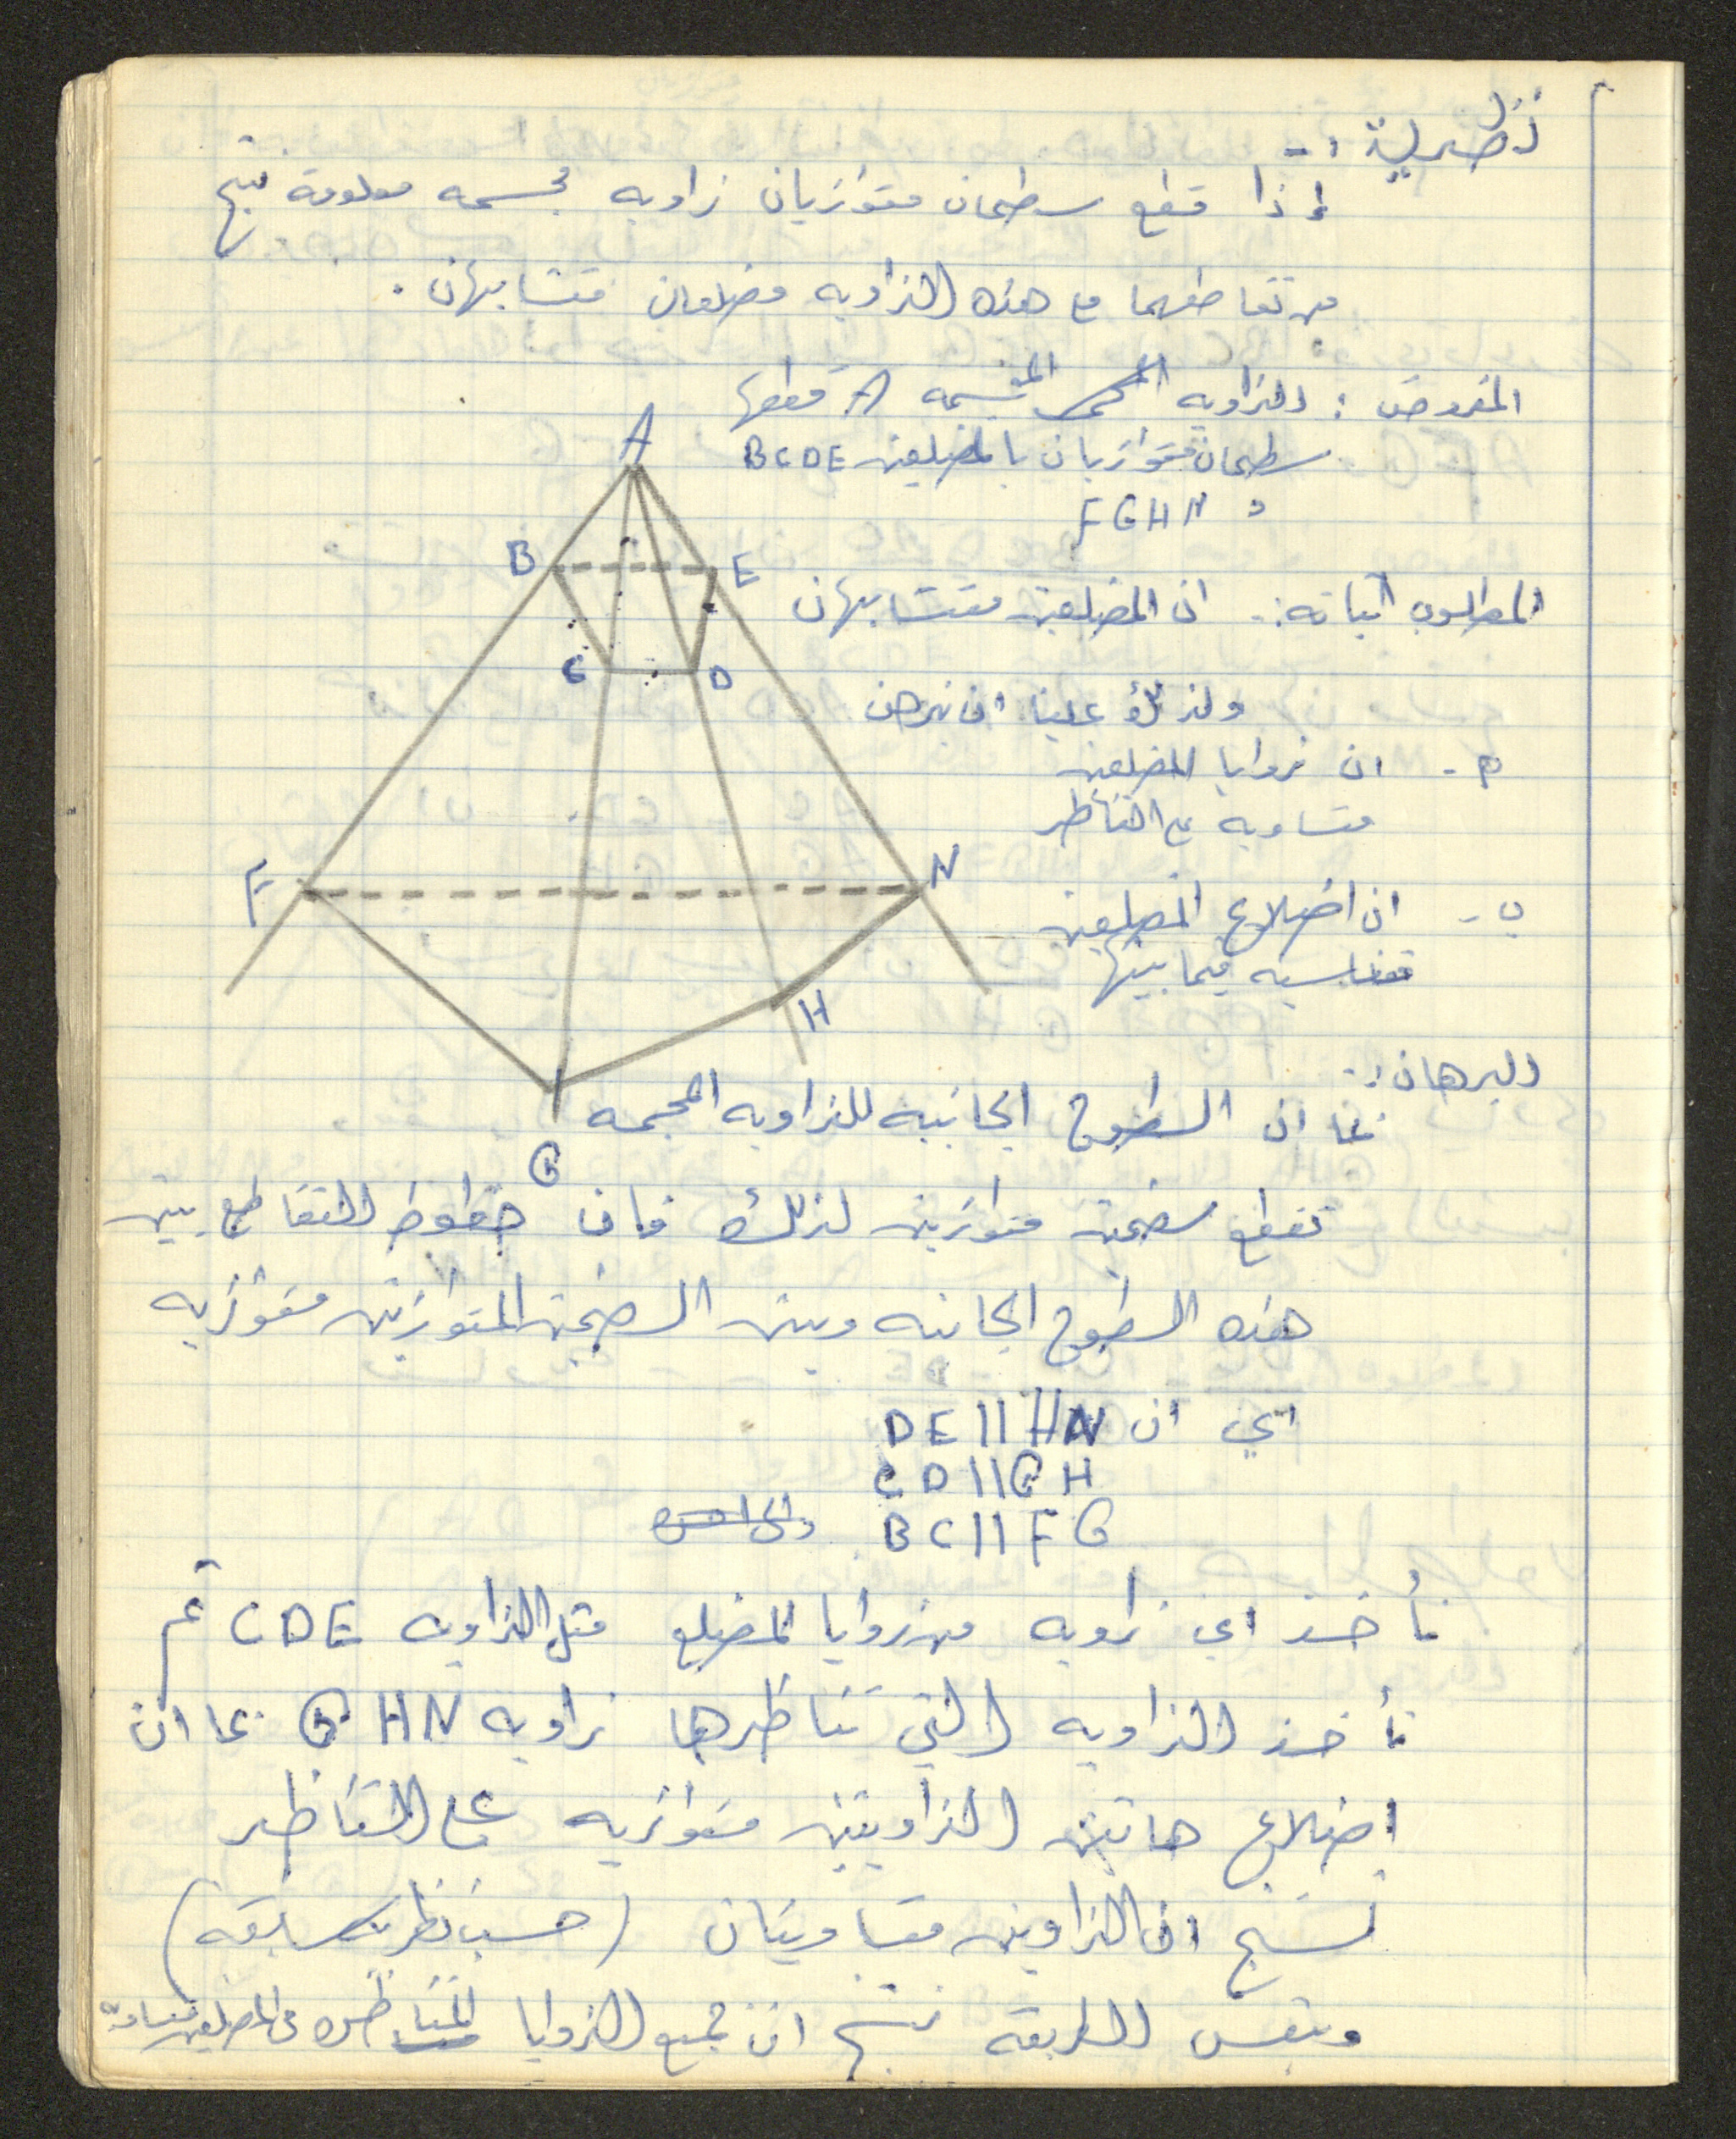 إذا قطع سطحان متوازيان زاويه مجسمه معلومة نتج
من تقاطعهما مع هذه الزاويه مضلعان متشابهان .
المفروض : الزاويه المجسمه A قطعها
سطحان متوازيان بالمضلعين BCDE
و FGHN
المطلوب اثباته :- ان المضلعين متشابهان
ولذلك علينا ان نبرهن
أ - ان زوايا المضلعين
متساويه على التناظر
ب - ان اضلاع المضلعين
متناسبه فيما بينها
A
B
E
C
D
F
N
H
G
البرهان :-
بما ان السطوح الجانبيه للزاويه المجسمه
تقطع سطحين متوازيين لذلك فان خطوط التقاطع بين
هذه السطوح الجانبيه وبين السطحين المتوازيين متوازيه
اي ان DE||HN
CD||GH
BC||FG
نأخذ اي زاويه من زوايا المضلع مثل الزاويه CDE ثم
نأخذ الزاويه التي تناظرها زاويه GHN بما ان
اضلاع هاتين الزاويتين متوازيه على التناظر
نستنتج ان الزاويتين متساويتان (حسب نظريه سابقه)
وبنفس الطريقه نستنتج ان جميع الزوايا المتناظره في المضلعين متساويه